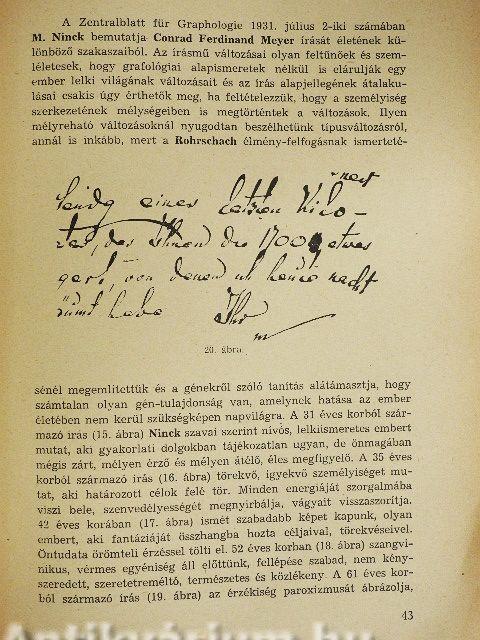 A Zentralblatt für Graphologie 1931. július 2-iki számában
M. Ninck bemutatja Conrad Ferdinand Meyer írását életének kü-
lönböző szakaszaiból. Az írásmű változásai olyan feltűnőek és szem-
léletesek, hogy grafológiai alapismeretek nélkül is elárulják egy
ember lelki világának változásait és az írás alapjellegének átalaku-
lásai csakis úgy érthetők meg, ha feltételezzük, hogy a személyiség
szerkezetének mélységeiben is megtörténtek a változások. Ilyen
mélyreható változásoknál nyugodtan beszélhetünk típusváltozásról,
annál is inkább, mert a Rohrschach élmény-felfogásnak ismerteté-
eines letzten
der Ihnen die 1700
von denen
habe
20. ábra.
sénél megemlítettük és a génekről szóló tanítás alátámasztja, hogy
számtalan olyan gén-tulajdonság van, amelynek hatása az ember
életében nem kerül szükségképen napvilágra. A 31 éves korból szár-
mazó írás (15. ábra) Ninck szavai szerint nívós, lelkiismeretes embert
mutat, aki gyakorlati dolgokban tájékozatlan ugyan, de önmagában
mégis zárt, mélyen érző és mélyen átélő, éles megfigyelő. A 35 éves
korból származó írás (16. ábra) törekvő, igyekvő személyiséget mu-
tat, aki határozott célok felé tör. Minden energiáját szorgalmába
viszi bele, szenvedélyességét megnyirbálja, vágyait visszaszorítja.
42 éves korában (17. ábra) ismét szabadabb képet kapunk, olyan
embert, aki fantáziáját összhangba hozta céljaival, törekvéseivel.
Öntudata örömteli érzéssel tölti el. 52 éves korban (18. ábra) szangvi-
nikus, vérmes egyéniség áll előttünk, fellépése szabad, nem kény-
szeredett, szeretetreméltó, természetes és közlékeny. A 61 éves kor-
ból származó írás (19. ábra) az érzékiség paroxizmusát ábrázolja,
43